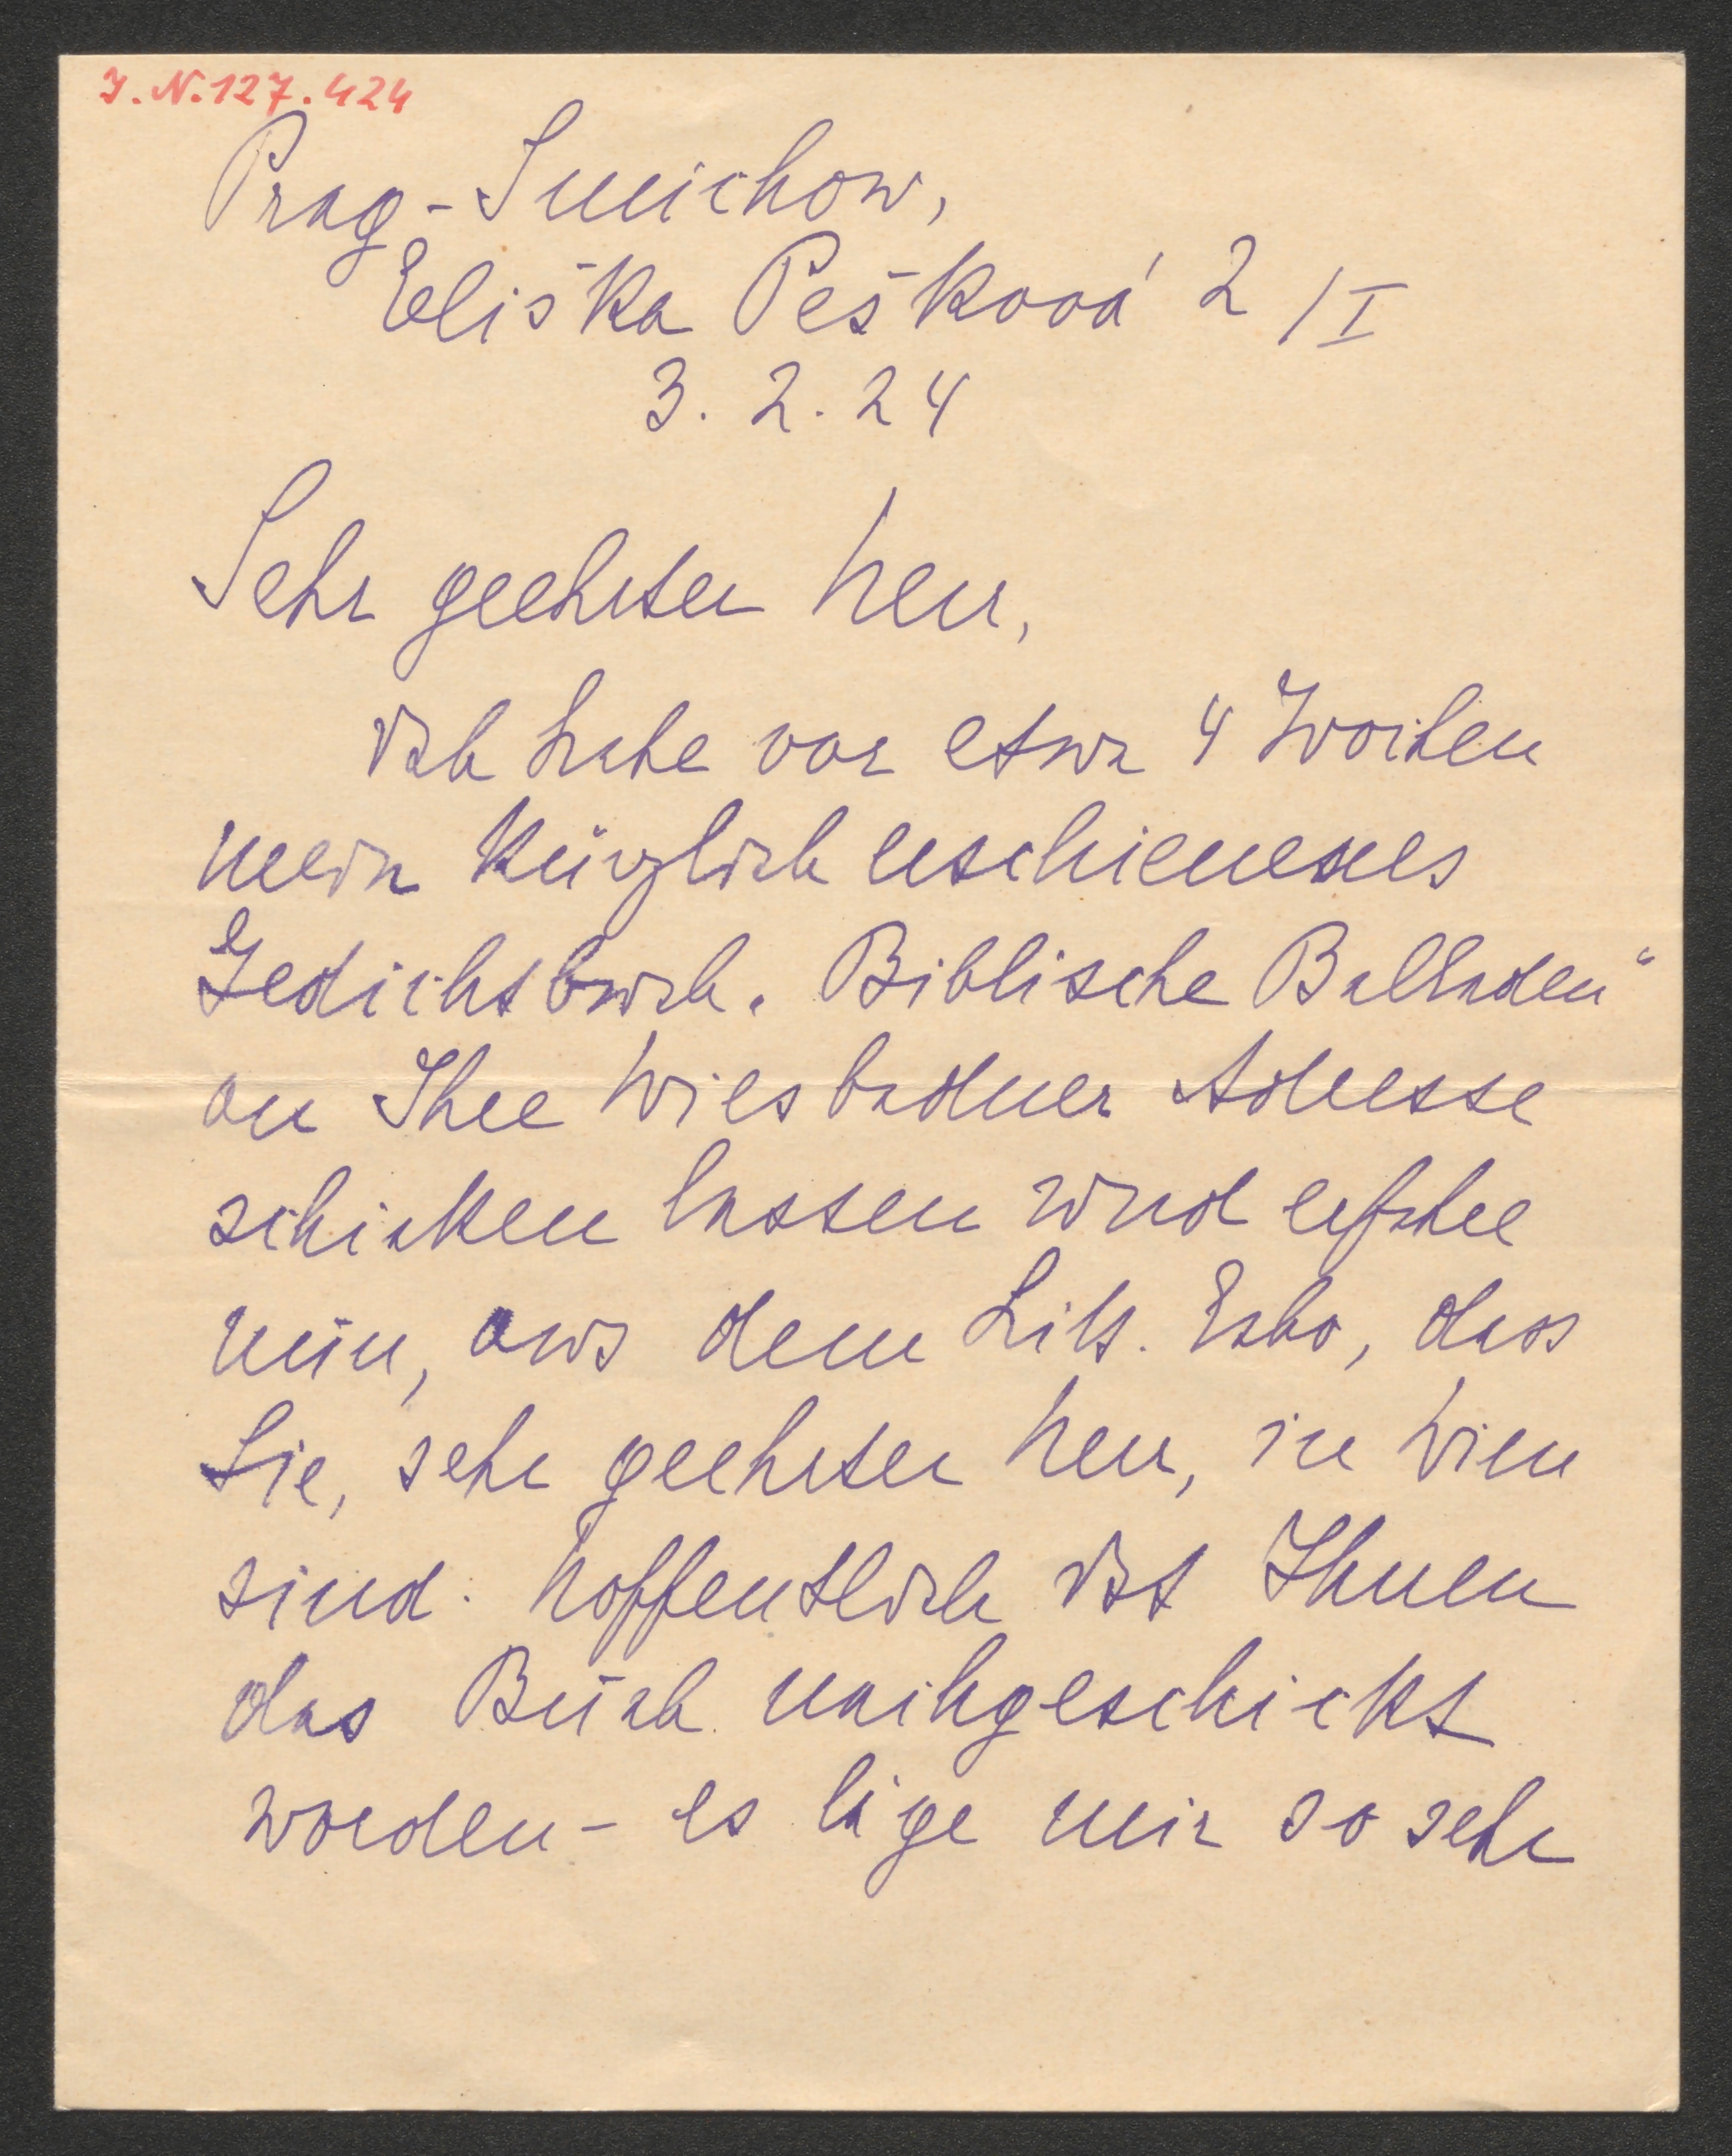 I. N. 127.424
Prag-Smichow,
Eliška Pešková 2 / I
3. 2. 24
Sehr geehrter Herr,
ich habe vor etwa 4 Wochen
mein kürzlich erschienenes
Gedichtbuch „Biblische Balladen“
an Ihre Wiesbadner Adresse
schicken lassen und erfahre
nun, aus dem Litt. Echo, dass
Sie, sehr geehrter Herr, in Wien
sind. Hoffentlich ist Ihnen
das Buch nachgeschickt
worden - es läge mir so sehr